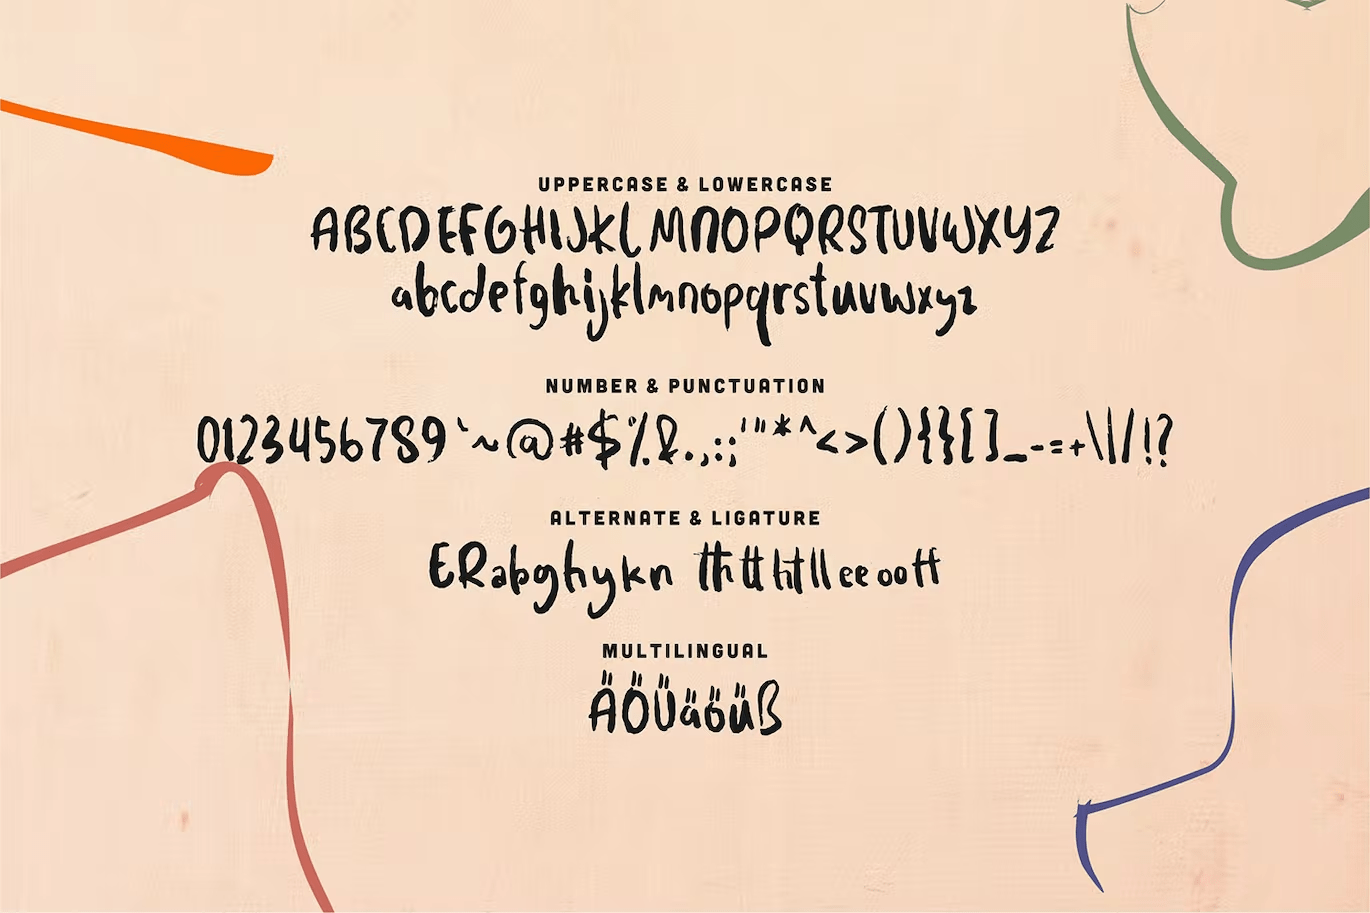 UPPERCASE & LOWERCASE
ABCDEFGHIJKLMNOPQRSTUVWXYZ
abcdefghijklmnopqrstuvwxyz
NUMBER & PUNCTUATION
0123456789`~@#$%&.,:;'"*^<>(){}[]_-=+\|/!?
ALTERNATE & LIGATURE
ERabghykn thtthtlleeooff
MULTILINGUAL
ÄÖÜäöüß